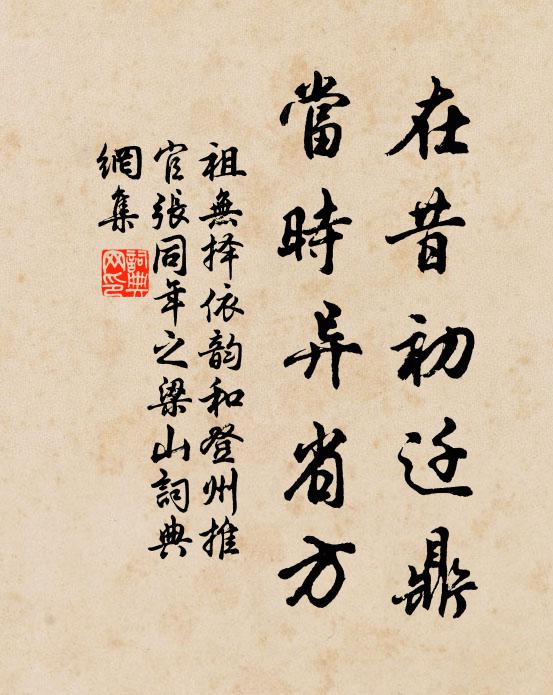 在昔初迁鼎
當時异省方
祖無择依韵和登州推
官張同年之梁山詞典
網集
詞典网印